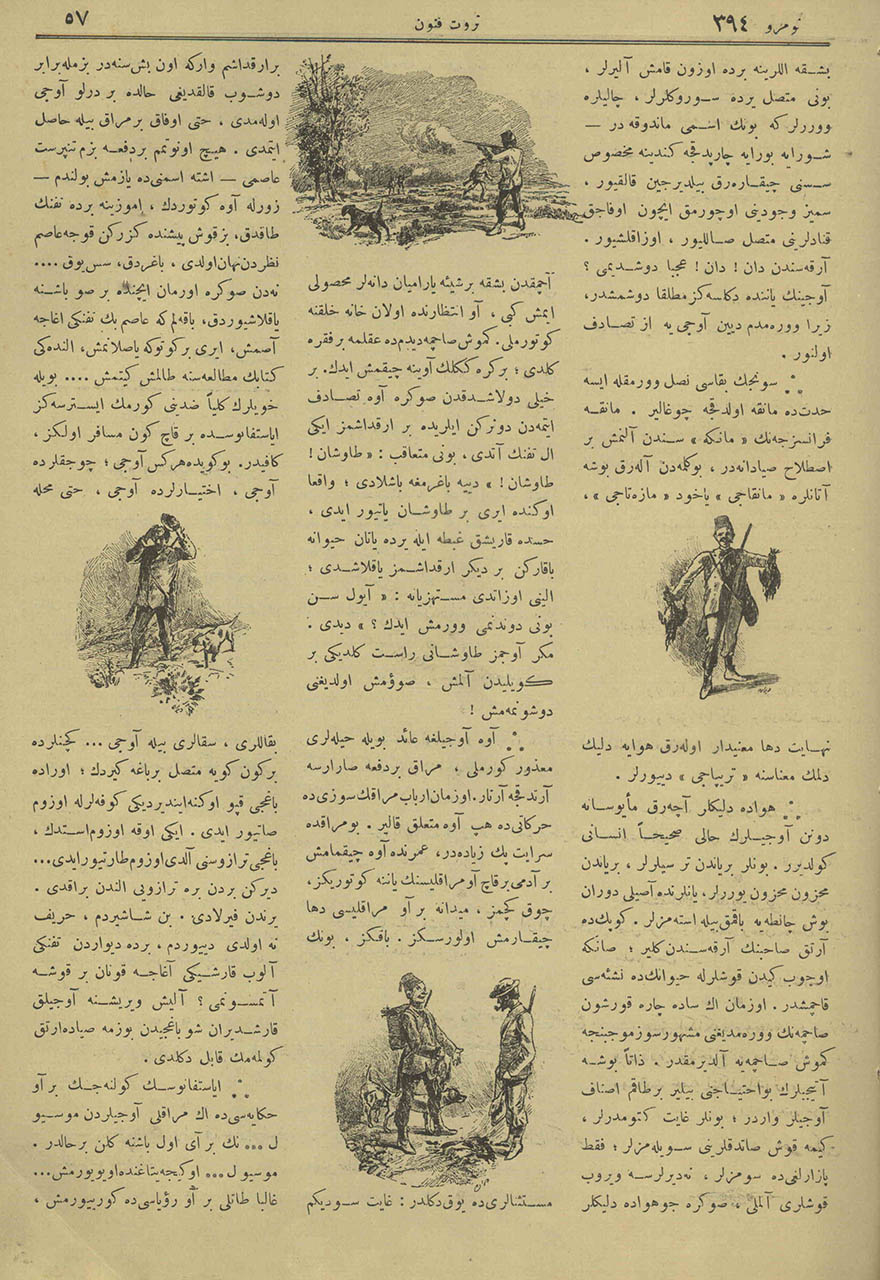 نومرو ٣٩٤
ثروت فنون
٥٧
بشقه اللرينه برده اوزون قامش آليرلر ،
بونى متصل يرده سوروكلرلر ، چاليلره
وورولر كه بونك اسمى ماندوقه در —
شورايه بورايه چارپدقجه كندينه مخصوص
سسنى چيقاره‌رق بيلديرجين قالقيور ،
سميز وجودينى اوچورمق ايچون اوفاجق
قنادلرينى متصل صاليلور ، اوزاقلشيور .
آرقه‌سندن دان ! دان ! عجبا دوشديمى ؟
آوجينك ياننده دكاسه‌كز مطلقا دوشمشدر،
زيرا ووره‌مدم ديين آوجى يه از تصادف
اولنور .
⁂ سونجك بقاسى نصل وورمقله ايسه
حدت‌ده مانقه اولدقجه چوغالير . مانقه
فرانسزجه‌نك « مانكه » سندن آلنمش بر
اصطلاح صيادانه‌در ، بوكله‌دن آله‌رق بوشه
آتانلره « مانقاجى » ياخود « مازه‌تاجى » ،
نهايت دها معنيدار اوله‌رق هوايه دليك
دلمك معناسنه « تريپاجى » ديبورلر .
⁂ هواده دليكلر آچه‌رق مأيوسانه
دونن آوجيلرك حالى صحيحاً انسانى
كولديرر . بونلر برياندن تر سيلرلر ، برياندن
محزون محزون يوررلر، يانلرنده آصيلى دوران
بوش چانطه‌يه باقمق بيله استه‌مزلر . كوپك‌ده
آرتق صاحبنك آرقه‌سندن كلير ؛ صانكه
اوجوب كيدن قوشلرله حيوانك‌ده نشئه‌سى
قاچمشدر . اوزمان اك ساده چاره قورشون
صاجمه‌نك ووره‌مديغى مشهورسوزموجبنجه
كموش صاجمه‌يه آلديرمقدر . ذاتاً بوشه
آتيجيلرك بواحتياجنى بيلير برطاقم اصناف
آوجيلر واردر ؛ بونلر غايت كتومدرلر ،
كيمه قوش صاتدقلرينى سويله‌مزلر ؛ فقط
پازارلغى‌ده سومزلر ، نه‌ديرلرسه ويروب
قوشلرى آلملى ، صوكره جوهواده دليكلر
آچمقدن بشقه برشيئه يارامايان دانه‌لر محصولى
ايمش كبى ، آو انتظارنده اولان خانه خلقنه
كوتورملى. كموش صاجمه ديدم‌ده عقلمه برفقره
كلدى ؛ بركره ككلك آوينه چيقمش ايدك. بر
خيلى دولاشدقدن صوكره آوه تصادف
ايتمه‌دن دونركن ايلريده بر ارقداشمز ايكى
ال تفنك آتدى ، بونى متعاقب : « طاوشان !
طاوشان ! » دييه باغرمغه باشلادى ؛ واقعا
اوكنده ايرى بر طاوشان ياتيور ايدى ،
حسده قاريشق غبطه ايله يرده ياتان حيوانه
باقاركن بر ديكر ارقداشمز ياقلاشدى ؛
الينى اوزاتدى مستهزيانه : « آيول سن
بونى دوندنمى وورمش ايدك ؟ » ديدى .
مكر آوجمز طاوشانى راست كلديكى بر
كويليدن آلمش ، صوؤمش اولديغنى
دوشونمه‌مش !
⁂ آوه آوجيلغه عائد بويله حيله‌لرى
معذور كورملى ، مراق بردفعه صارارسه
آرتدقجه آرتار. اوزمان ارباب مراقك سوزى‌ده
حركاتى‌ده هپ آوه متعلق قالير . بومراقده
سرايت پك زياده‌در، عمرنده آوه چيقمامش
بر آدمى برقاچ آو مراقليسنك ياننه كوتوريكز،
چوق كچمز ، ميدانه بر آو مراقليسى دها
چيقارمش اولورسكز . باقكز ، بونك
مستثنالرى‌ده يوق دكلدر : غايت سوديكم
برارقداشم واركه اون بش سنه‌در بزمله برابر
دوشوب قالقديغى حالده بر درلو آوجى
اوله‌مدى ، حتى اوفاق برمراق بيله حاصل
ايتمدى . هيچ اونوتمم بردفعه بزم تنپرست
عاصمى — اشته اسمنى‌ده يازمش بولندم —
زورله آوه كوتوردك ، اموزينه برده تفنك
طاقدق، بزقوش پيشنده كزركن قوجه‌عاصم
نظردن نهان اولدى ، باغردق، سس يوق ....
نه‌دن صوكره اورمان ايچنده بر صو باشنه
ياقلاشيوردق، باقه‌لم كه عاصم بك تفنكى اغاجه
آصمش، ايرى بركوتوكه ياصلانمش، النده‌كى
كتابك مطالعه‌سنه طالمش كيتمش .... بويله
خويلرك كلياً ضدينى كورمك ايسترسه‌كز
اياستفانوسده بر قاچ كون مسافر اولكز ،
كافيدر. بوكويده هركس آوجى ؛ چوجقلرده
آوجى ، اختيارلرده آوجى ، حتى محله
بقاللرى ، سقالرى بيله آوجى ... كچنلرده
بركون كويه متصل برباغه كيردك ؛ اوراده
باغجى قپو اوكنه ايندير‌ديكى كوفه‌لرله اوزوم
صاتيور ايدى . ايكى اوقه اوزوم استدك ،
باغجى ترازوسنى آلدى اوزوم طارتيورايدى...
ديركن بردن بره ترازويى الندن براقدى .
يرندن فيرلادى . بن شاشيردم ، حريف
نه اولدى ديبوردم ، برده ديواردن تفنكى
آلوب قارشيكى آغاجه قونان بر قوشه
آتمسونمى ؟ آليش ويريشنه آوجيلق
قارشديران شو باغجيدن بوزمه صياده آرتق
كولمه‌مك قابل دكلدى .
⁂ اياستفانوسك كولنه‌جك بر آو
حكايه‌سى‌ده اك مراقلى آوجيلردن موسيو
ل ... نك بر آى اول باشنه كلن برحالدر .
موسيو ل ... اوكيجه يتاغنده اويويورمش...
غالبا طاتلى بر آو رؤياسى‌ده كورييورمش ،